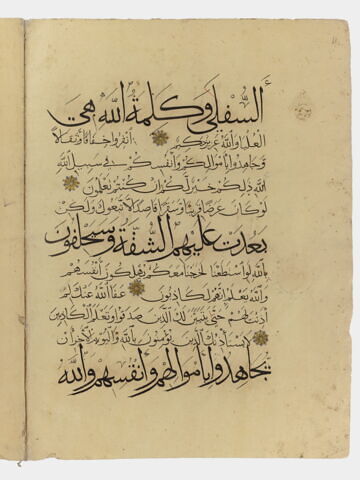 السفلى وكلمة الله هي
العليا والله عزيز حكيم انفروا خفافا وثقالا
وجاهدوا باموالكم وانفسكم في سبيل الله
الله ذلكم خير لكم ان كنتم تعلمون
لو كان عرضا قريبا وسفرا قاصدا لاتبعوك ولكن
بعدت عليهم الشقة وسيحلفون
بالله لو استطعنا لخرجنا معكم يهلكون انفسهم
والله يعلم انهم لكاذبون عفا الله عنك لم
اذنت لهم حتى يتبين لك الذين صدقوا وتعلم الكاذبين
لا يستاذنك الذين يؤمنون بالله واليوم الاخر ان
يجاهدوا باموالهم وانفسهم والله